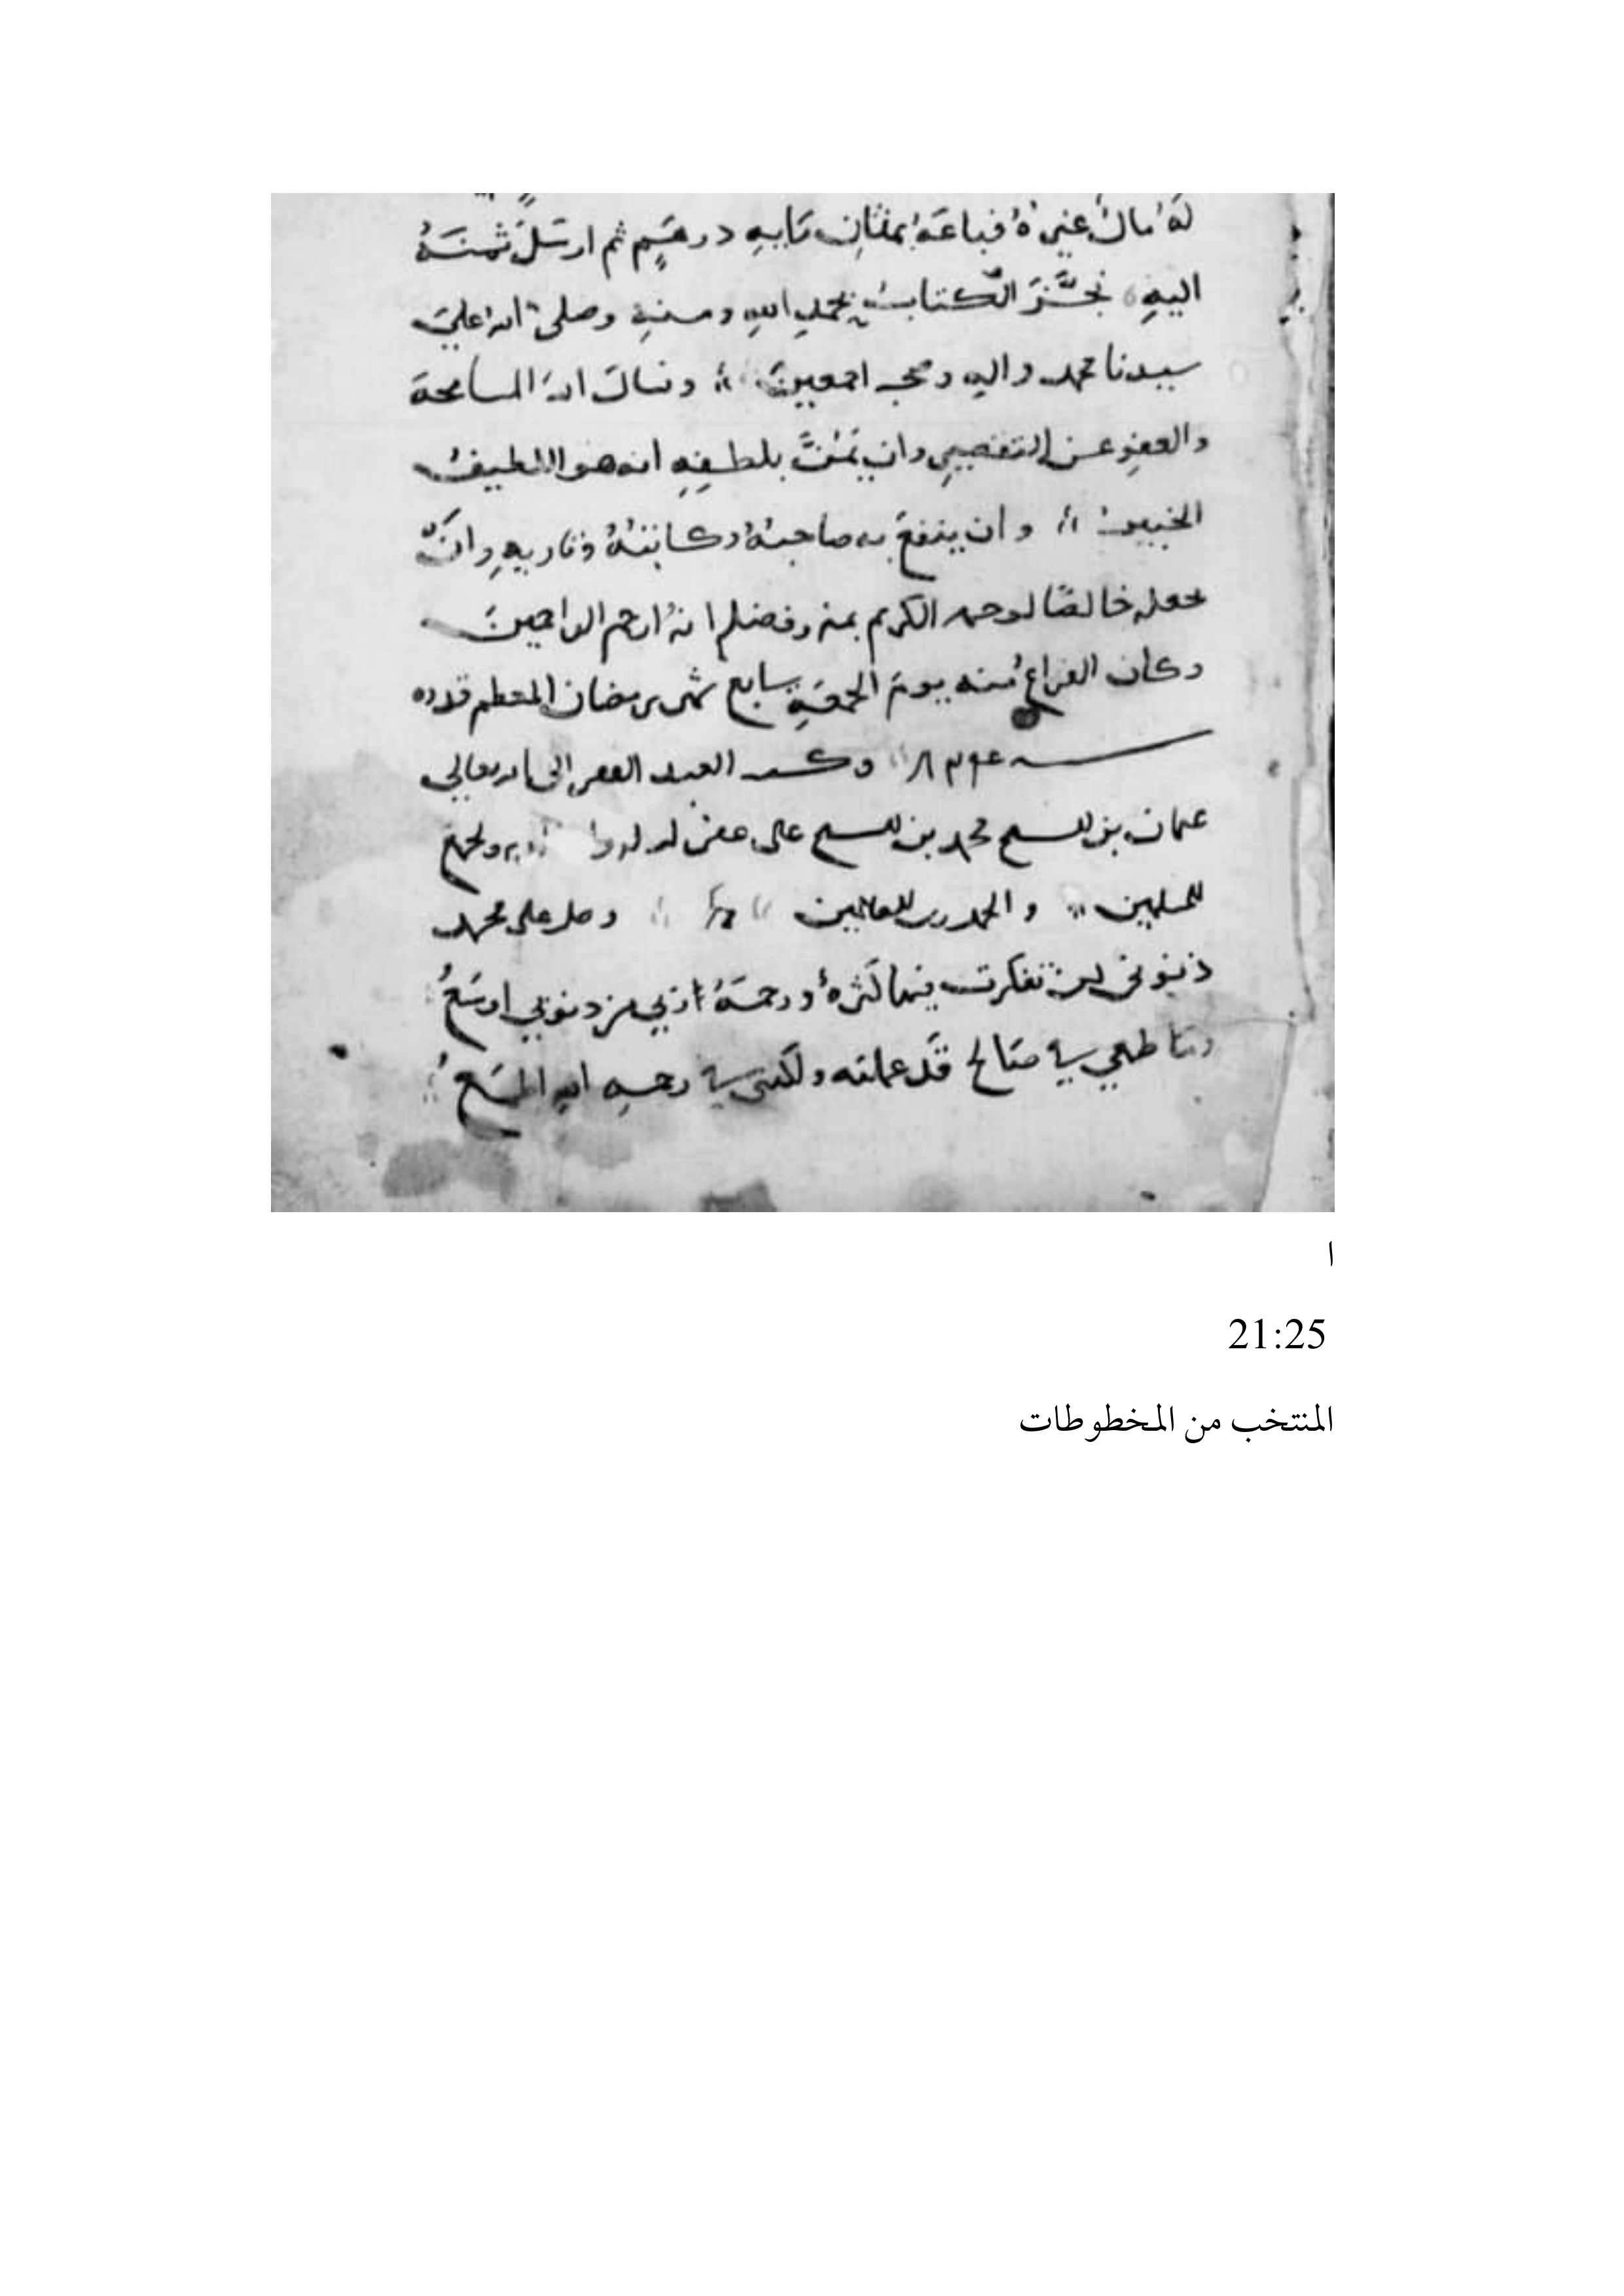 لَهُ مالٌ غيرُهُ فباعَهُ بمثانِ مَايهِ درهَمٍ ثم ارسَلَ ثمنَهُ
اليهِ نجَّزَ الكتابُ بحمدِ اللهِ ومنهِ وصلى اللهُ على
سيدنا محمد واله وصحبه اجمعين ونسال الله المسامحة
والعفوِ عن التقصيرِ وان يَمُنَّ بلطفِهِ انه هو اللطيفُ
الخبيرُ وان ينفعَ به صاحبهُ وكاتبهُ وقاريهِ وان
يجعله خالصًا لوجهه الكريم بمنه وفضله انهُ ارحم الراحمينَ
وكان الفراغُ منه يومَ الجمعَةِ سابع شهر رمضان المعظم قدره
سنه وكتبه العبد الفقير الى الله تعالى
عثمان بن الشيخ محمد بن الشيخ على غفر الله له ولجميع
المسلمين والحمد لله رب العالمين وصلى على محمد
ذنوبى ان تفكرت فيها كثرهُ ورحمَةُ ربي من ذنوبي اوسَعُ
وما طمعي في صَالح قَد عملته ولكننى في رحمه الله اطمَعُ
ا
21:25
المنتخب من المخطوطات